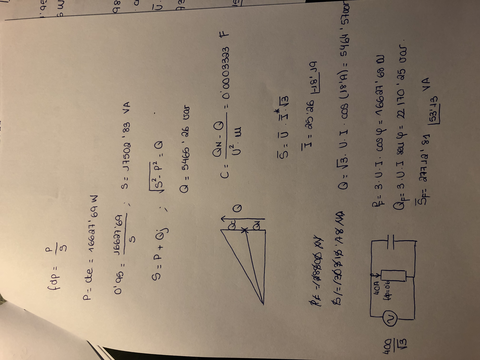 fdp = P/S
P = cte = 16627'69 W
0'95 = 16627'69/S ; S = 17502'83 VA
S = P + Qj ; √S²-P² = Q
Q = 5465'26 var
Q
Qc
C = QN - Q / U² W = 0'0003323 F
S = U I* √3
I = 25'26 |-18'19
Q = √3 · U · I cos (18'19) = 5464'57var
P = 3 U · I · cos φ = 16627'69 W
Q = 3 · U I sen φ = 22170'25 var
S = 27712'81 |53'13 VA
400/√3
40A